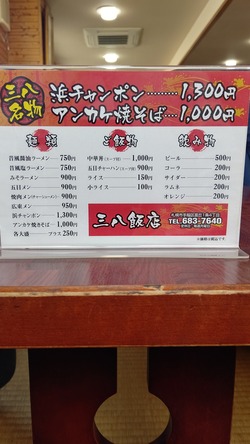 三八名物
浜チャンポン………1,300円
アンカケ焼そば…1,000円
麺類
昔風醤油ラーメン…750円
昔風塩ラーメン……750円
みそラーメン………900円
五目メン……………900円
焼肉メン(チャーシューメン) 900円
広東メン……………950円
浜チャンポン……1,300円
アンカケ焼そば…1,000円
各大盛……プラス 250円
ご飯物
中華丼(スープ付)……1,000円
五目チャーハン(スープ付)…900円
ライス………………150円
小ライス……………100円
飲み物
ビール………500円
コーラ………200円
サイダー……200円
ラムネ………200円
オレンジ……200円
三八飯店
TEL 683-7640